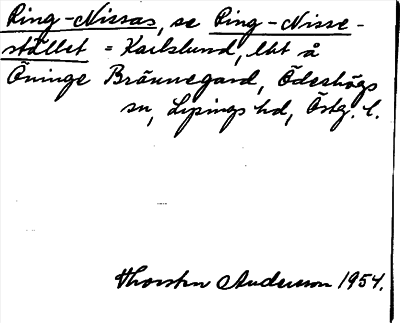 Ring-Nissas, se Ring-Nisse-
stället = Karlslund, lht å
Öninge Brännegard, Ödeshögs
sn, Lysings hd, Östg. l.
Thorsten Andersson 1954.